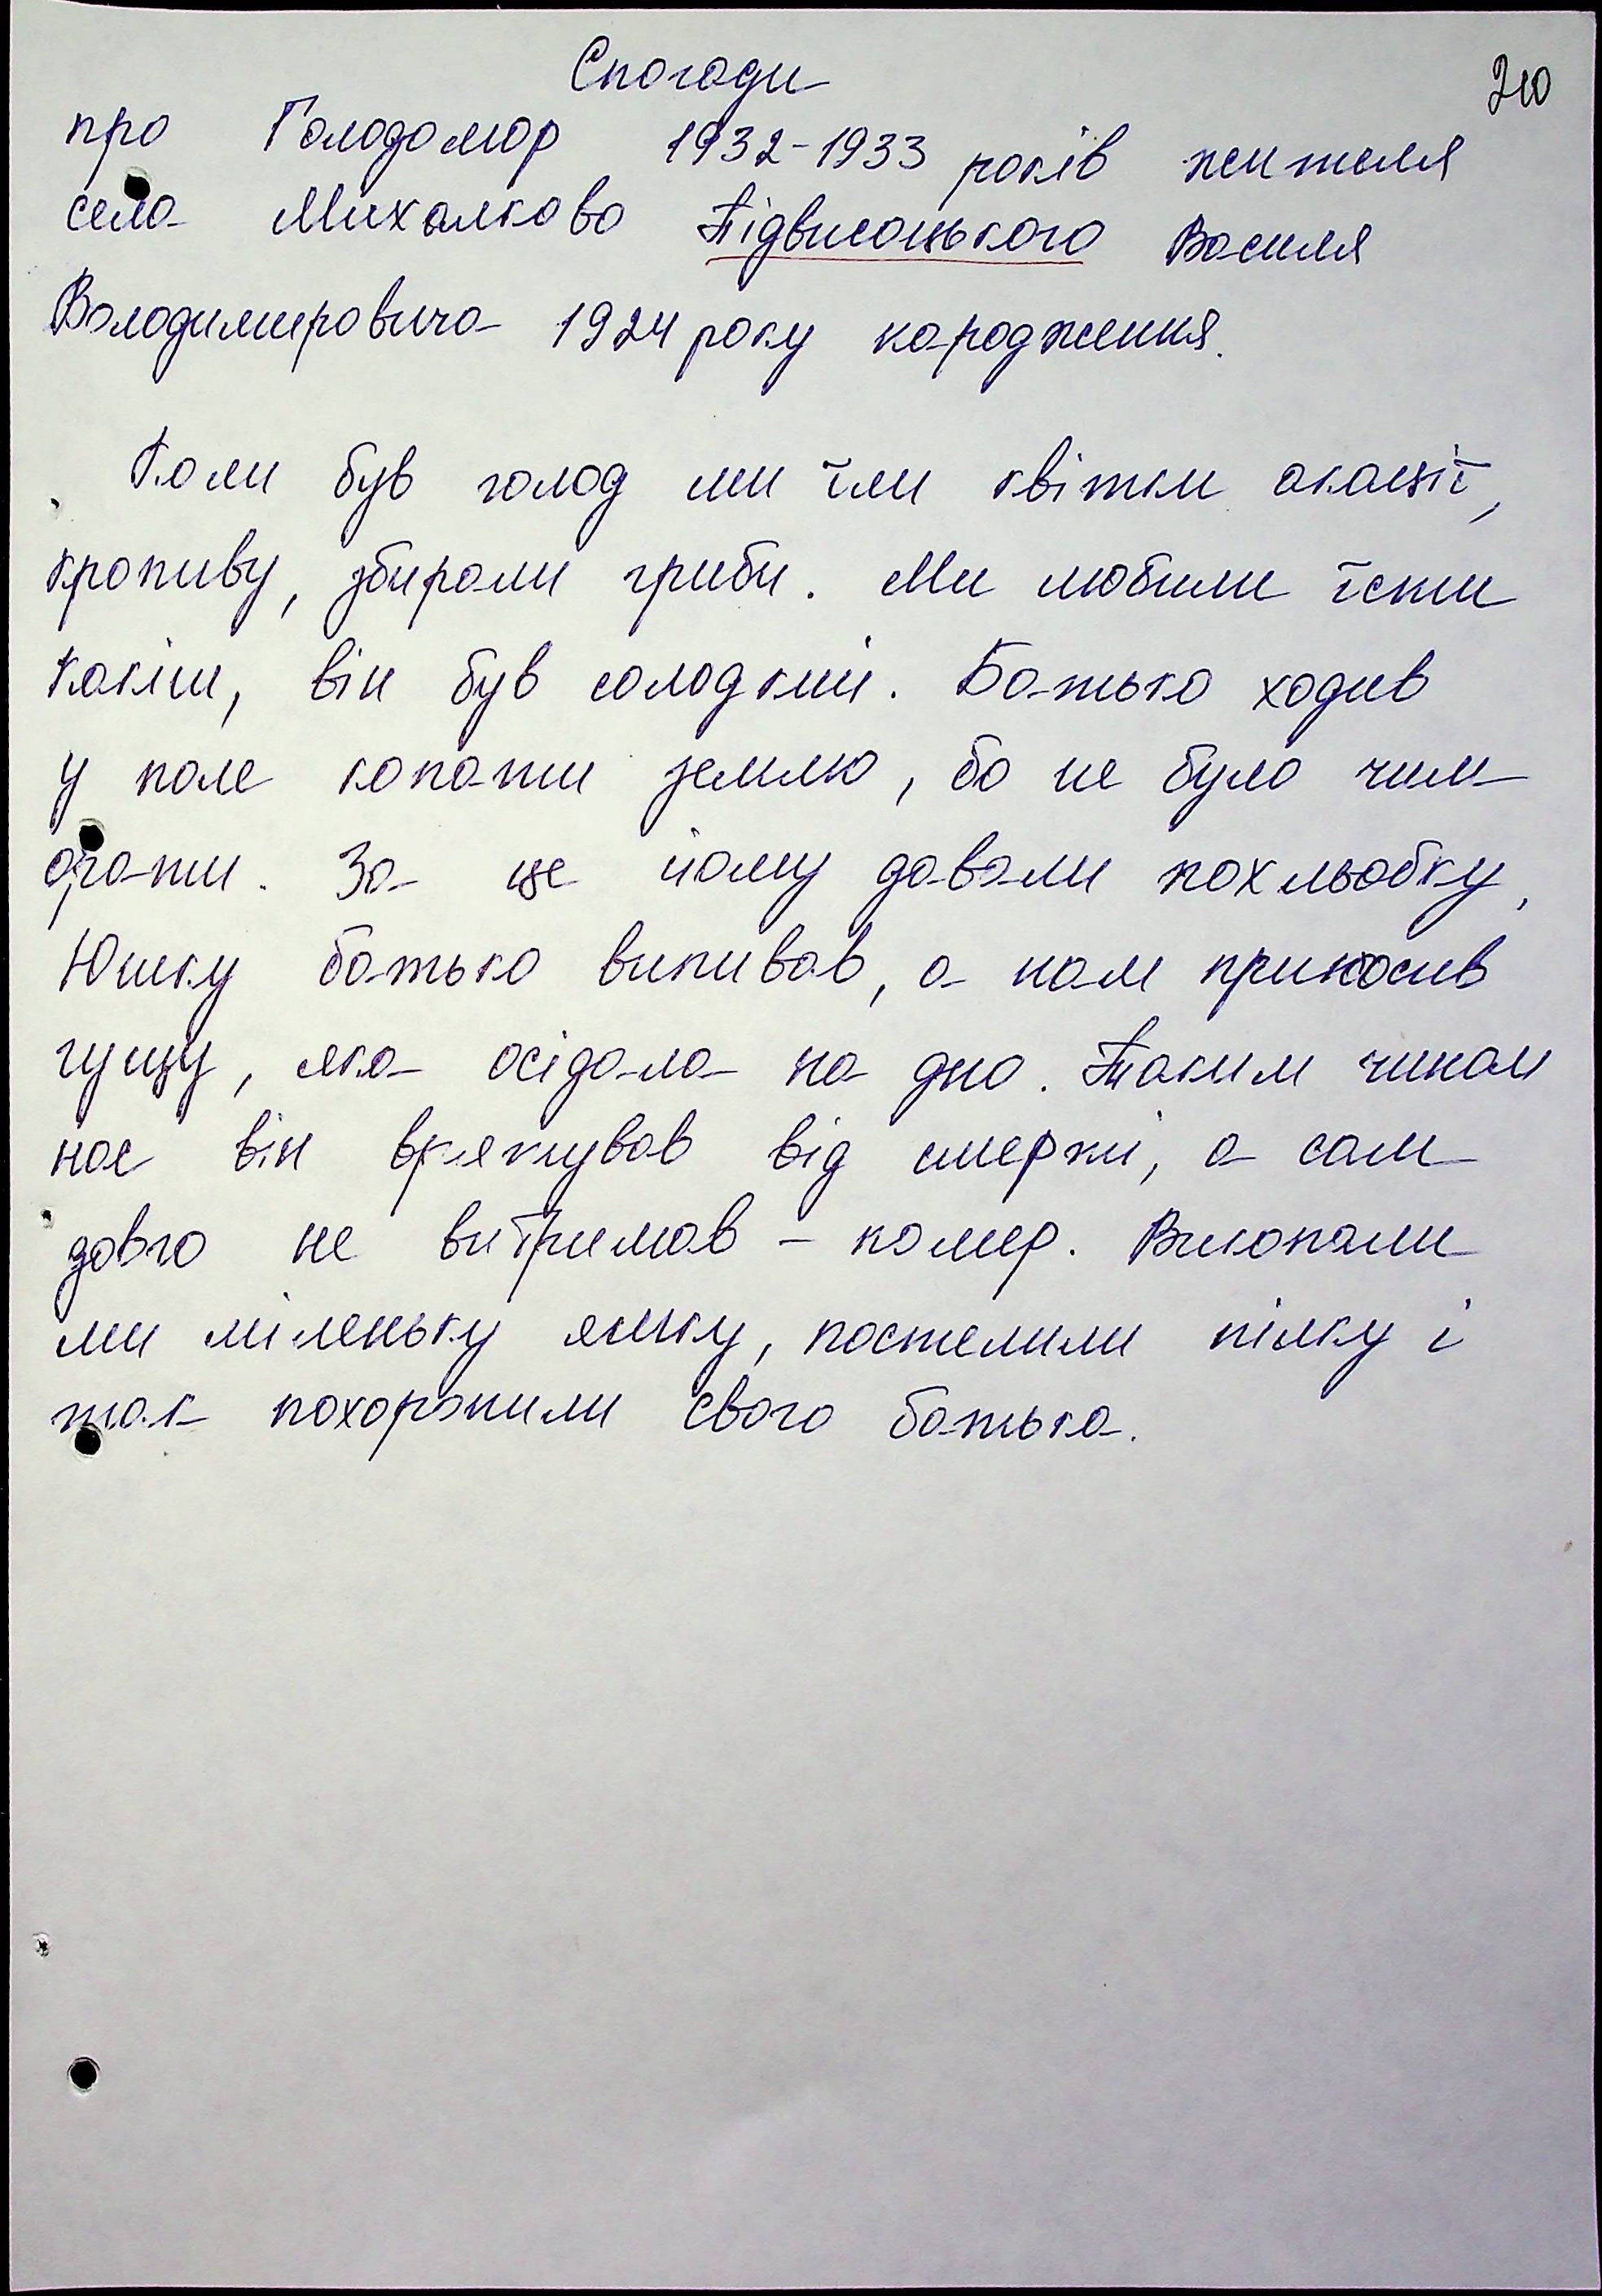 Спогади
210
про Голодомор 1932-1933 років жителя
села Михалкова Підвисоцького Василя
Володимировича 1924 року народження.
Коли був голод ми їли квітки акації,
кропиву, збирали гриби. Ми любили їсти
какіш, він був солодкий. Батько ходив
у поле копати землю, бо не було чим
орати. За це йому давали похльобку,
Юшку батько випивав, а нам приносив
гущу, яка осідала на дно. Таким чином
нас він врятував від смерті, а сам
довго не витримав - помер. Викопали
ми міленьку ямку, постелили пілку і
так похоронили свого батька.